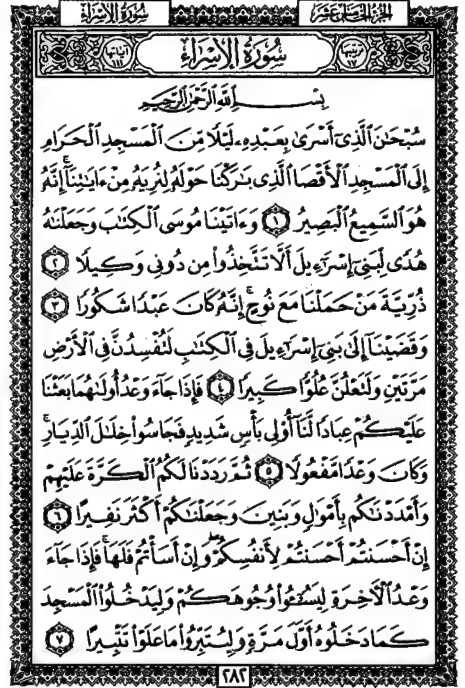 سُورَةُ الإِسۡرَاءِ
الجُزءُ الخَامِسَ عَشَرَ
ترتيبها ١٧
سُورَةُ الإِسۡرَاءِ
آياتها ١١١
بِسۡمِ ٱللَّهِ ٱلرَّحۡمَٰنِ ٱلرَّحِيمِ
سُبۡحَٰنَ ٱلَّذِيٓ أَسۡرَىٰ بِعَبۡدِهِۦ لَيۡلٗا مِّنَ ٱلۡمَسۡجِدِ ٱلۡحَرَامِ
إِلَى ٱلۡمَسۡجِدِ ٱلۡأَقۡصَا ٱلَّذِي بَٰرَكۡنَا حَوۡلَهُۥ لِنُرِيَهُۥ مِنۡ ءَايَٰتِنَآۚ إِنَّهُۥ
هُوَ ٱلسَّمِيعُ ٱلۡبَصِيرُ ١ وَءَاتَيۡنَا مُوسَى ٱلۡكِتَٰبَ وَجَعَلۡنَٰهُ
هُدٗى لِّبَنِيٓ إِسۡرَٰٓءِيلَ أَلَّا تَتَّخِذُواْ مِن دُونِي وَكِيلٗا ٢
ذُرِّيَّةَ مَنۡ حَمَلۡنَا مَعَ نُوحٍۚ إِنَّهُۥ كَانَ عَبۡدٗا شَكُورٗا ٣
وَقَضَيۡنَآ إِلَىٰ بَنِيٓ إِسۡرَٰٓءِيلَ فِي ٱلۡكِتَٰبِ لَتُفۡسِدُنَّ فِي ٱلۡأَرۡضِ
مَرَّتَيۡنِ وَلَتَعۡلُنَّ عُلُوّٗا كَبِيرٗا ٤ فَإِذَا جَآءَ وَعۡدُ أُولَىٰهُمَا بَعَثۡنَا
عَلَيۡكُمۡ عِبَادٗا لَّنَآ أُوْلِي بَأۡسٖ شَدِيدٖ فَجَاسُواْ خِلَٰلَ ٱلدِّيَارِۚ
وَكَانَ وَعۡدٗا مَّفۡعُولٗا ٥ ثُمَّ رَدَدۡنَا لَكُمُ ٱلۡكَرَّةَ عَلَيۡهِمۡ
وَأَمۡدَدۡنَٰكُم بِأَمۡوَٰلٖ وَبَنِينَ وَجَعَلۡنَٰكُمۡ أَكۡثَرَ نَفِيرًا ٦
إِنۡ أَحۡسَنتُمۡ أَحۡسَنتُمۡ لِأَنفُسِكُمۡۖ وَإِنۡ أَسَأۡتُمۡ فَلَهَاۚ فَإِذَا جَآءَ
وَعۡدُ ٱلۡأٓخِرَةِ لِيَسُـُٔواْ وُجُوهَكُمۡ وَلِيَدۡخُلُواْ ٱلۡمَسۡجِدَ
كَمَا دَخَلُوهُ أَوَّلَ مَرَّةٖ وَلِيُتَبِّرُواْ مَا عَلَوۡاْ تَتۡبِيرًا ٧
٢٨٢